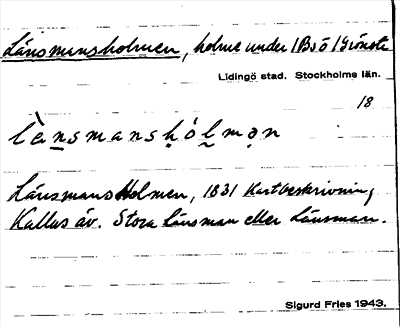 Länsmansholmen, holme under 1 Bsö 1 Grönsta
Lidingö stad. Stockholms län.
18
lὲn̲smansḥólmən
Länsmans Holmen, 1831 Kartbeskrivning
Kallas äv. Stora Länsman eller Länsman.
Sigurd Fries 1943.